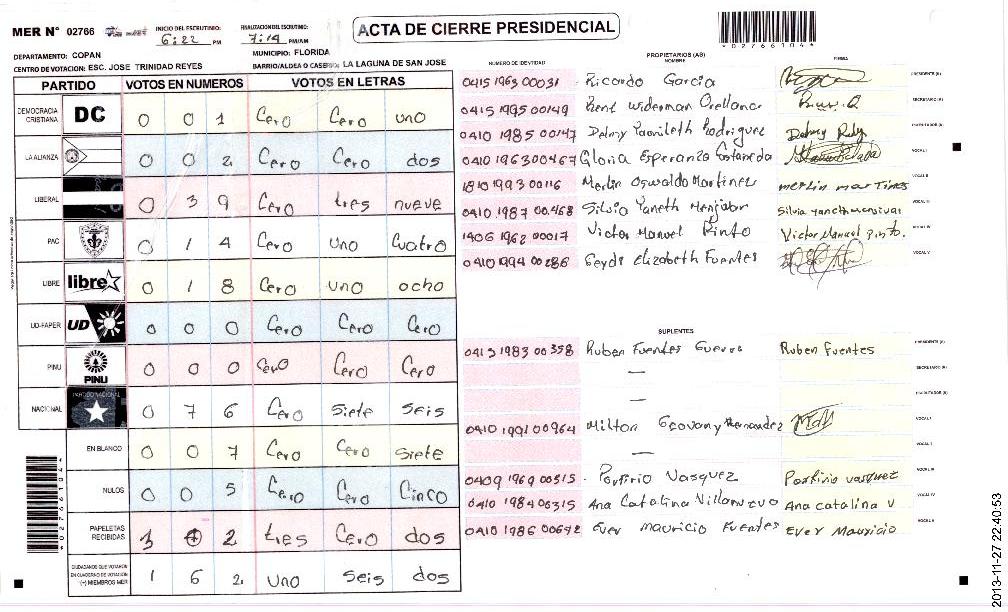 MER Nº 02766 INICIO DEL ESCRUTINIO: 6:22 PM FINALIZACION DEL ESCRUTINIO: 7:14 PM/AM ACTA DE CIERRE PRESIDENCIAL
*02766104*
DEPARTAMENTO: COPAN MUNICIPIO: FLORIDA
CENTRO DE VOTACION: ESC. JOSE TRINIDAD REYES BARRIO/ALDEA O CASERIO: LA LAGUNA DE SAN JOSE
PARTIDO VOTOS EN NUMEROS VOTOS EN LETRAS
DEMOCRACIA CRISTIANA DC 0 0 1 Cero Cero uno
LA ALIANZA 0 0 2 Cero Cero dos
LIBERAL 0 3 9 Cero tres nueve
PAC 0 1 4 Cero uno Cuatro
LIBRE libre 0 1 8 Cero uno ocho
UD-FAPER UD 0 0 0 Cero Cero Cero
PINU PINU 0 0 0 Cero Cero Cero
NACIONAL PARTIDO NACIONAL 0 7 6 Cero Siete Seis
EN BLANCO 0 0 7 Cero Cero Siete
NULOS 0 0 5 Cero Cero Cinco
PAPELETAS RECIBIDAS 3 0 2 tres Cero dos
CIUDADANOS QUE VOTARON EN CUADERNO DE VOTACION (+) MIEMBROS MER 1 6 2 uno seis dos
*02766104*
PROPIETARIOS (AS)
NUMERO DE IDENTIDAD NOMBRE FIRMA
0415 1963 00031 Ricardo Garcia PRESIDENTE (A)
0415 1995 00149 Widerman Orellana SECRETARIO (A)
0410 1985 00147 Delmy Yamileth Rodriguez Delmy Rdz ESCRUTADOR (A)
0410 1963 00467 Gloria Esperanza Castaneda VOCAL I
1810 1993 00116 Merlin Oswaldo Martinez merlin martines VOCAL II
0410 1987 00468 Silvia Yaneth Menjivar Silvia Yaneth menjivar VOCAL III
1406 1962 00017 Victor Manuel Pinto Victor Manuel pinto. VOCAL IV
0410 1994 00286 Geydi Elizabeth Fuentes VOCAL V
SUPLENTES
0413 1983 00358 Ruben Fuentes Guerra Ruben Fuentes PRESIDENTE (A)
— SECRETARIO (A)
— ESCRUTADOR (A)
0410 1991 00964 Milton Geovany Hernandez VOCAL I
— VOCAL II
0409 1969 00315 Porfirio Vasquez Porfirio vasquez VOCAL III
0410 1984 00315 Ana Catalina Villanuevo Ana catalina V VOCAL IV
0410 1986 00642 Ever Mauricio Fuentes Ever Mauricio VOCAL V
2013-11-27 22:40:53